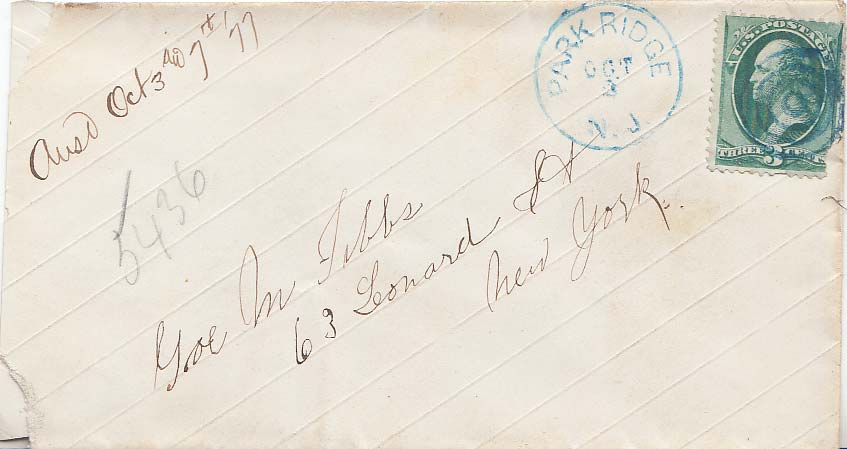 Ansd Oct 3rd 7th '77
PARK RIDGE
OCT
3
N. J.
U.S. POSTAGE
THREE 3 CENTS
5436
M Tibbs
63 Leonard St
New York.